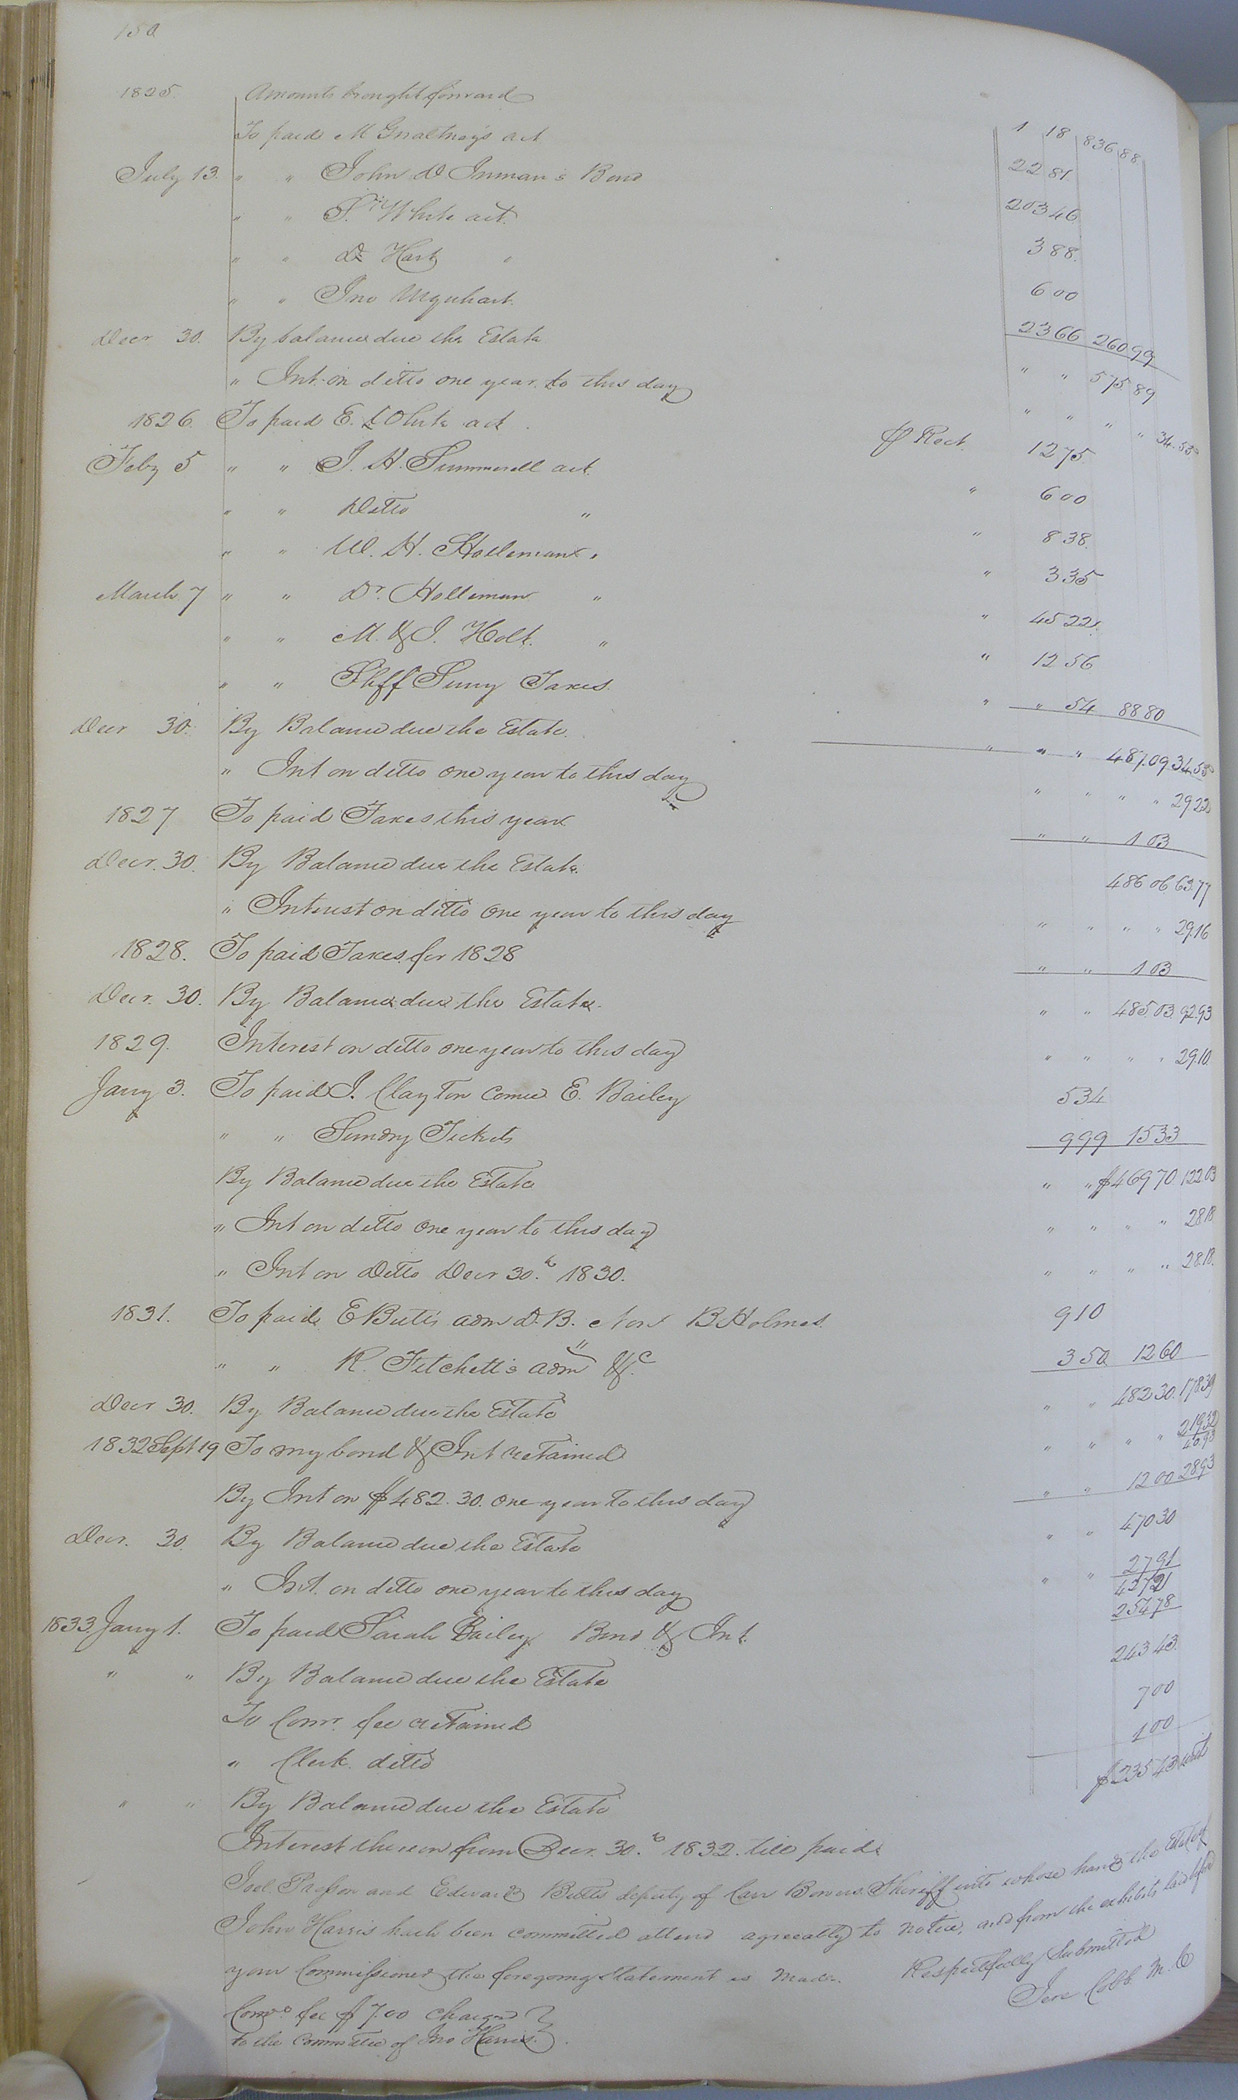 150
1825. Amounts brought forward 1 18 836 88
To paid M Gwaltney's act 22 81
July 13. " " John D Inman's Bond 203 46
" " White act. 3 88
" " Dr Hart " 6 00
" " Jno Urquhart 23 66 260 99
Decr 30. By balance due the Estate " " 575 89
" Int. on ditto one year to this day " " " " 34.55
1826. To paid E. White act. $ Rect. 12 75
Feby 5 " " J. H. Summerell act. " 6 00
" " Ditto " " 8 38
" " W. H. Holleman " " 3 35
March 7 " " Dr. Holleman " " 45 22
" " M. & J. Holt. " " 12 56
" " Shff Surry Taxes. " " 54 88 80
Decr 30. By Balance due the Estate. " " " 487.09 34.55
" Int on ditto one year to this day " " " " 29 22
1827 To paid Taxes this year " " 1 03
Decr. 30. By Balance due the Estate. 486 06 63.77
" Interest on ditto One year to this day " " " " 29.16
1828. To paid Taxes for 1828 " " 1 03
Decr. 30. By Balance due the Estate. " " 485 03 92.93
1829. Interest on ditto one year to this day " " " " 29.10
Jany 3. To paid J. Clayton Comr E. Bailey 5 34
" " Sundry Tickets 9 99 15 33
By Balance due the Estate " " $469 70 122 03
" Int on ditto One year to this day " " " " 28 18
" Int on Ditto Decr 30.th 1830. " " " " 28.18.
1831. To paid E Butts adm D. B. Non B Holmes. 9 10
" " R. Fitchett's adm &c. 3 50 12 60
Decr 30. By Balance due the Estate " " 482 30. 178 39
1832 Sept 19 To my bond & Int retained " " " " 219 32
40 93
By Int on $482.30. one year to this day " " 12 00 28 93
Decr. 30. By Balance due the Estate " " 470 30
" Int. on ditto one year to this day " " 27 91
1833. Jany 1. To paid Sarah Bailey Bond & Int. 254 78
" " By Balance due the Estate 243 43
To Comr. fee retained 7 00
" Clerk ditto 1 00
" " By Balance due the Estate $235 43 with
Interest thereon from Decr. 30.th 1832. till paid.
Joel and Edward Butts deputy of Carr Bowers Sheriff into whose hands the Estate of
John Harris hath been committed attend agreeably to notice, and from the exhibits laid before
your Commissioner the foregoing Statement is Made. Respectfully Submitted
Jere Cobb M. C
Comrs fee $7.00 charged
to the committee of Jno Harris.